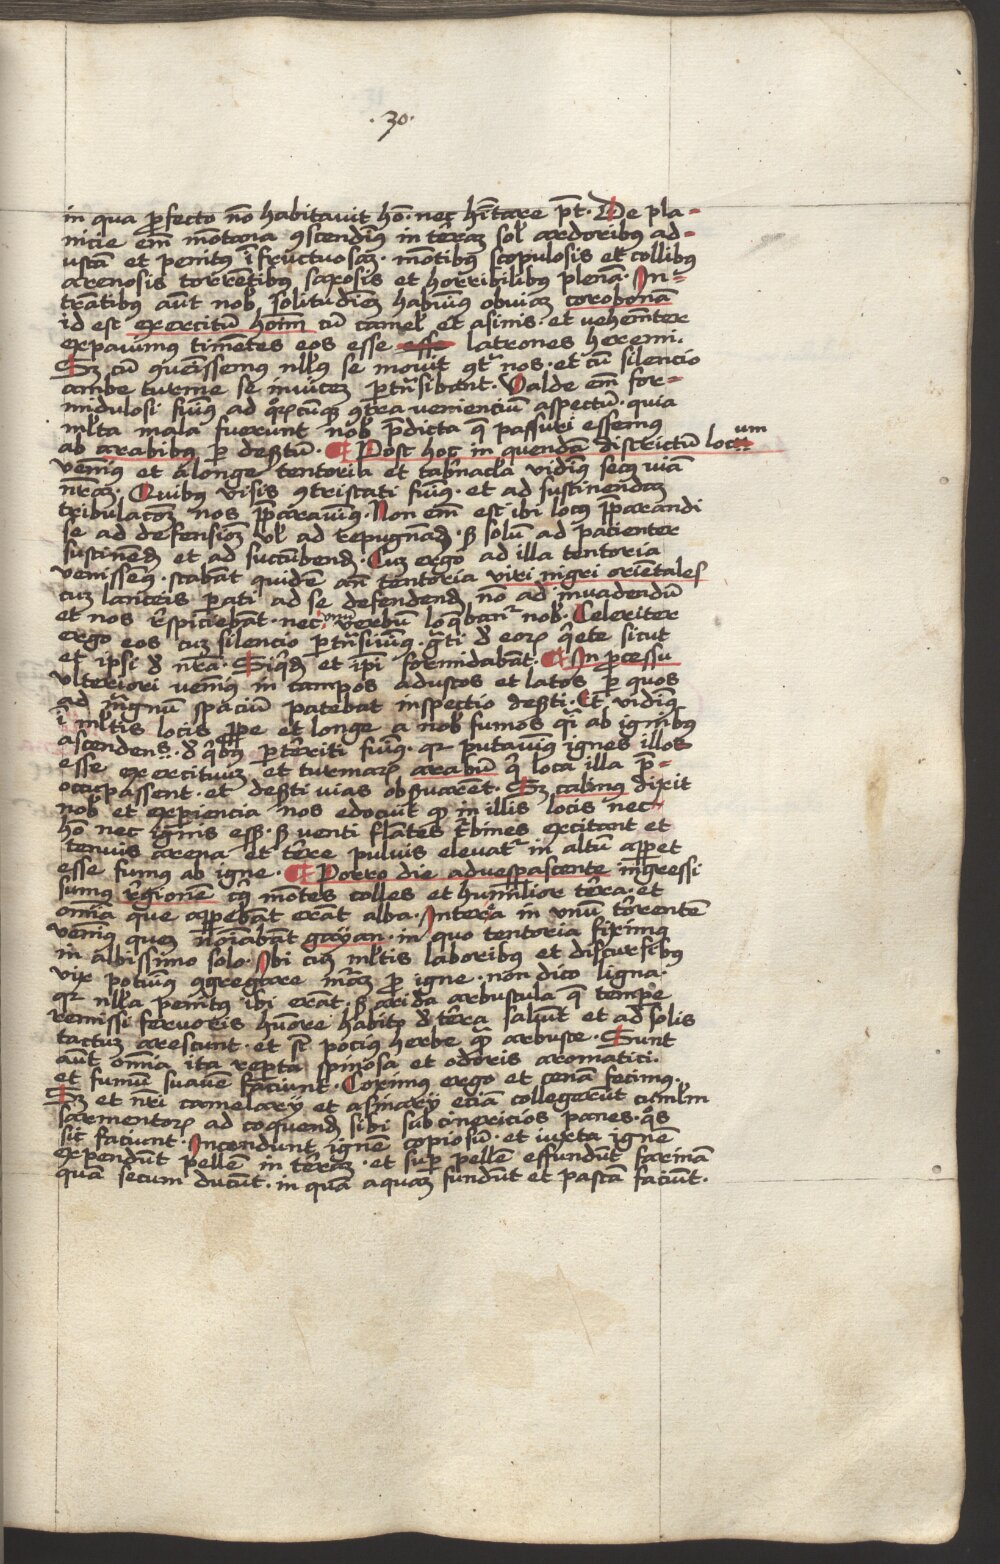 .30.
in qua ꝓfecto nō habitauit hō. nec hītare pt̄. De pla-
nicie em̄ mōtana ꝯscendimꝰ in terrā sol' ardoribꝰ ad-
ustā et penitꝰ īfructuosaꝫ. mōtibꝰ scopulosis et collibꝰ
arenosis torrētibꝰ saxosis et horribilibꝰ plenā. In-
trātibꝰ aūt nob' solitudīeꝫ habuimꝰ obuiaꝫ corobonā
id est exercitū hoīm cū camel' et asinis. et vehemēter
expauimꝰ timētes eos esse latrones heremi.
Sꝫ cū quēissemꝰ nllꝰ se mouit ꝯtᷓ nos. et cū silencio
ambe turme se inuiceꝫ ꝑtn̄sibant. Valde em̄ for-
midulosi fuimꝰ ad ꝯtra venienciū aspectū. quia
ml̄ta mala fuerunt nob' p̄dicta q̄ passuri essemꝰ
ab arabibꝰ ꝑ desertū. ¶ Post hoc in quendā districtū locum
venimꝰ et alonge tentoria et tabn̄acl̄a vidimꝰ secꝰ viā
nr̄aꝫ. Quibꝰ visis ꝯtristati fuimꝰ. et ad sustinendaꝫ
tribulacōꝫ nos p̄parauimꝰ. Non em̄ est ibi locꝰ p̄parandi
se ad defensioꝫ vl' ad repugnand'. sꝫ solū ad pacienter
sustinend' et ad succūbend'. Cuꝫ ergo ad illa tentoria
venissemꝰ. stabāt quidē an̄ tentoria viri nigri orientales
cuꝫ lanceis ꝑati ad se defendend' nō ad inuadendū
et nos respiciebāt. nec vnū verbū loq̄banᵗ nob'. Celeriter
ergo eos cuꝫ silencio ꝑtn̄siuimꝰ. gr̄ti d' eoꝝ q̇ete sicut
et ipsi d' nr̄a. Siq̇d' et ip̄i formidabāt. ¶ In ꝓcessu
vlteriori venimꝰ in campos adustos et latos ꝑ quos
ad magnū spaciū patebat inspectio deserti. Et vidimꝰ
ī ml̄tis locis ꝓpe et longe a nob' fumos q̄i ab ignibꝰ
ascendens. d' q̇bꝰ ꝑterriti fuimꝰ. qꝛ putauimꝰ ignes illos
esse exercituum et turmaꝝ arabū q̇ loca illa p̄-
occupassent. et deserti vias obẜuarēt. Sꝫ calinus dixit
nob' et exꝑiencia nos edocuit ꝙ in illis locis nec
hō nec ignis esẜ. sꝫ venti flātes turbines excitant et
tenuis arena et terre puluis eleuatᵗ in altū apꝑet
esse fumꝰ ab igne. ¶ Porro die aduesꝑascente ingressi
sumus regionē cuiꝰ mōtes colles et humilior terra. et
omīa que apꝑebāt erāt alba. Interea in vnū torrentē
venimꝰ queꝫ noīabāt gayan. in quo tentoria fiximꝰ
in albissimo solo. Vbi cuꝫ ml̄tis laboribus et discursibꝰ
vix potuimꝰ ꝯgregare mr̄aꝫ ꝓ igne. non dico ligna.
qꝛ nll̄a penitꝰ ibi erāt. sꝫ arida arbuscula q̄ tempe
remissi feruoris humore habito d' terra saliūt et ad solis
tactum arescunt. et sūt pocius herbe ꝙᷓ arbuste. Sunt
aūt omīa ita repta spinosa et odoris aromatici.
et fumū suauē faciunt. Coximus ergo et cenā fecimꝰ.
Sꝫ et nri camelarij et asinarij eciā collegerūt cumlm̄
sarmentoꝝ ad coquend' sibi subcinericios panes. q̇s
sic faciunt. Incendunt ignē copiosū. et iuxta ignē
expendūt pellē in terraꝫ. et suꝑ pellē effundūt farinā
quā secum ducūt. in quā aquaꝫ fundūt et pastā faciūt.